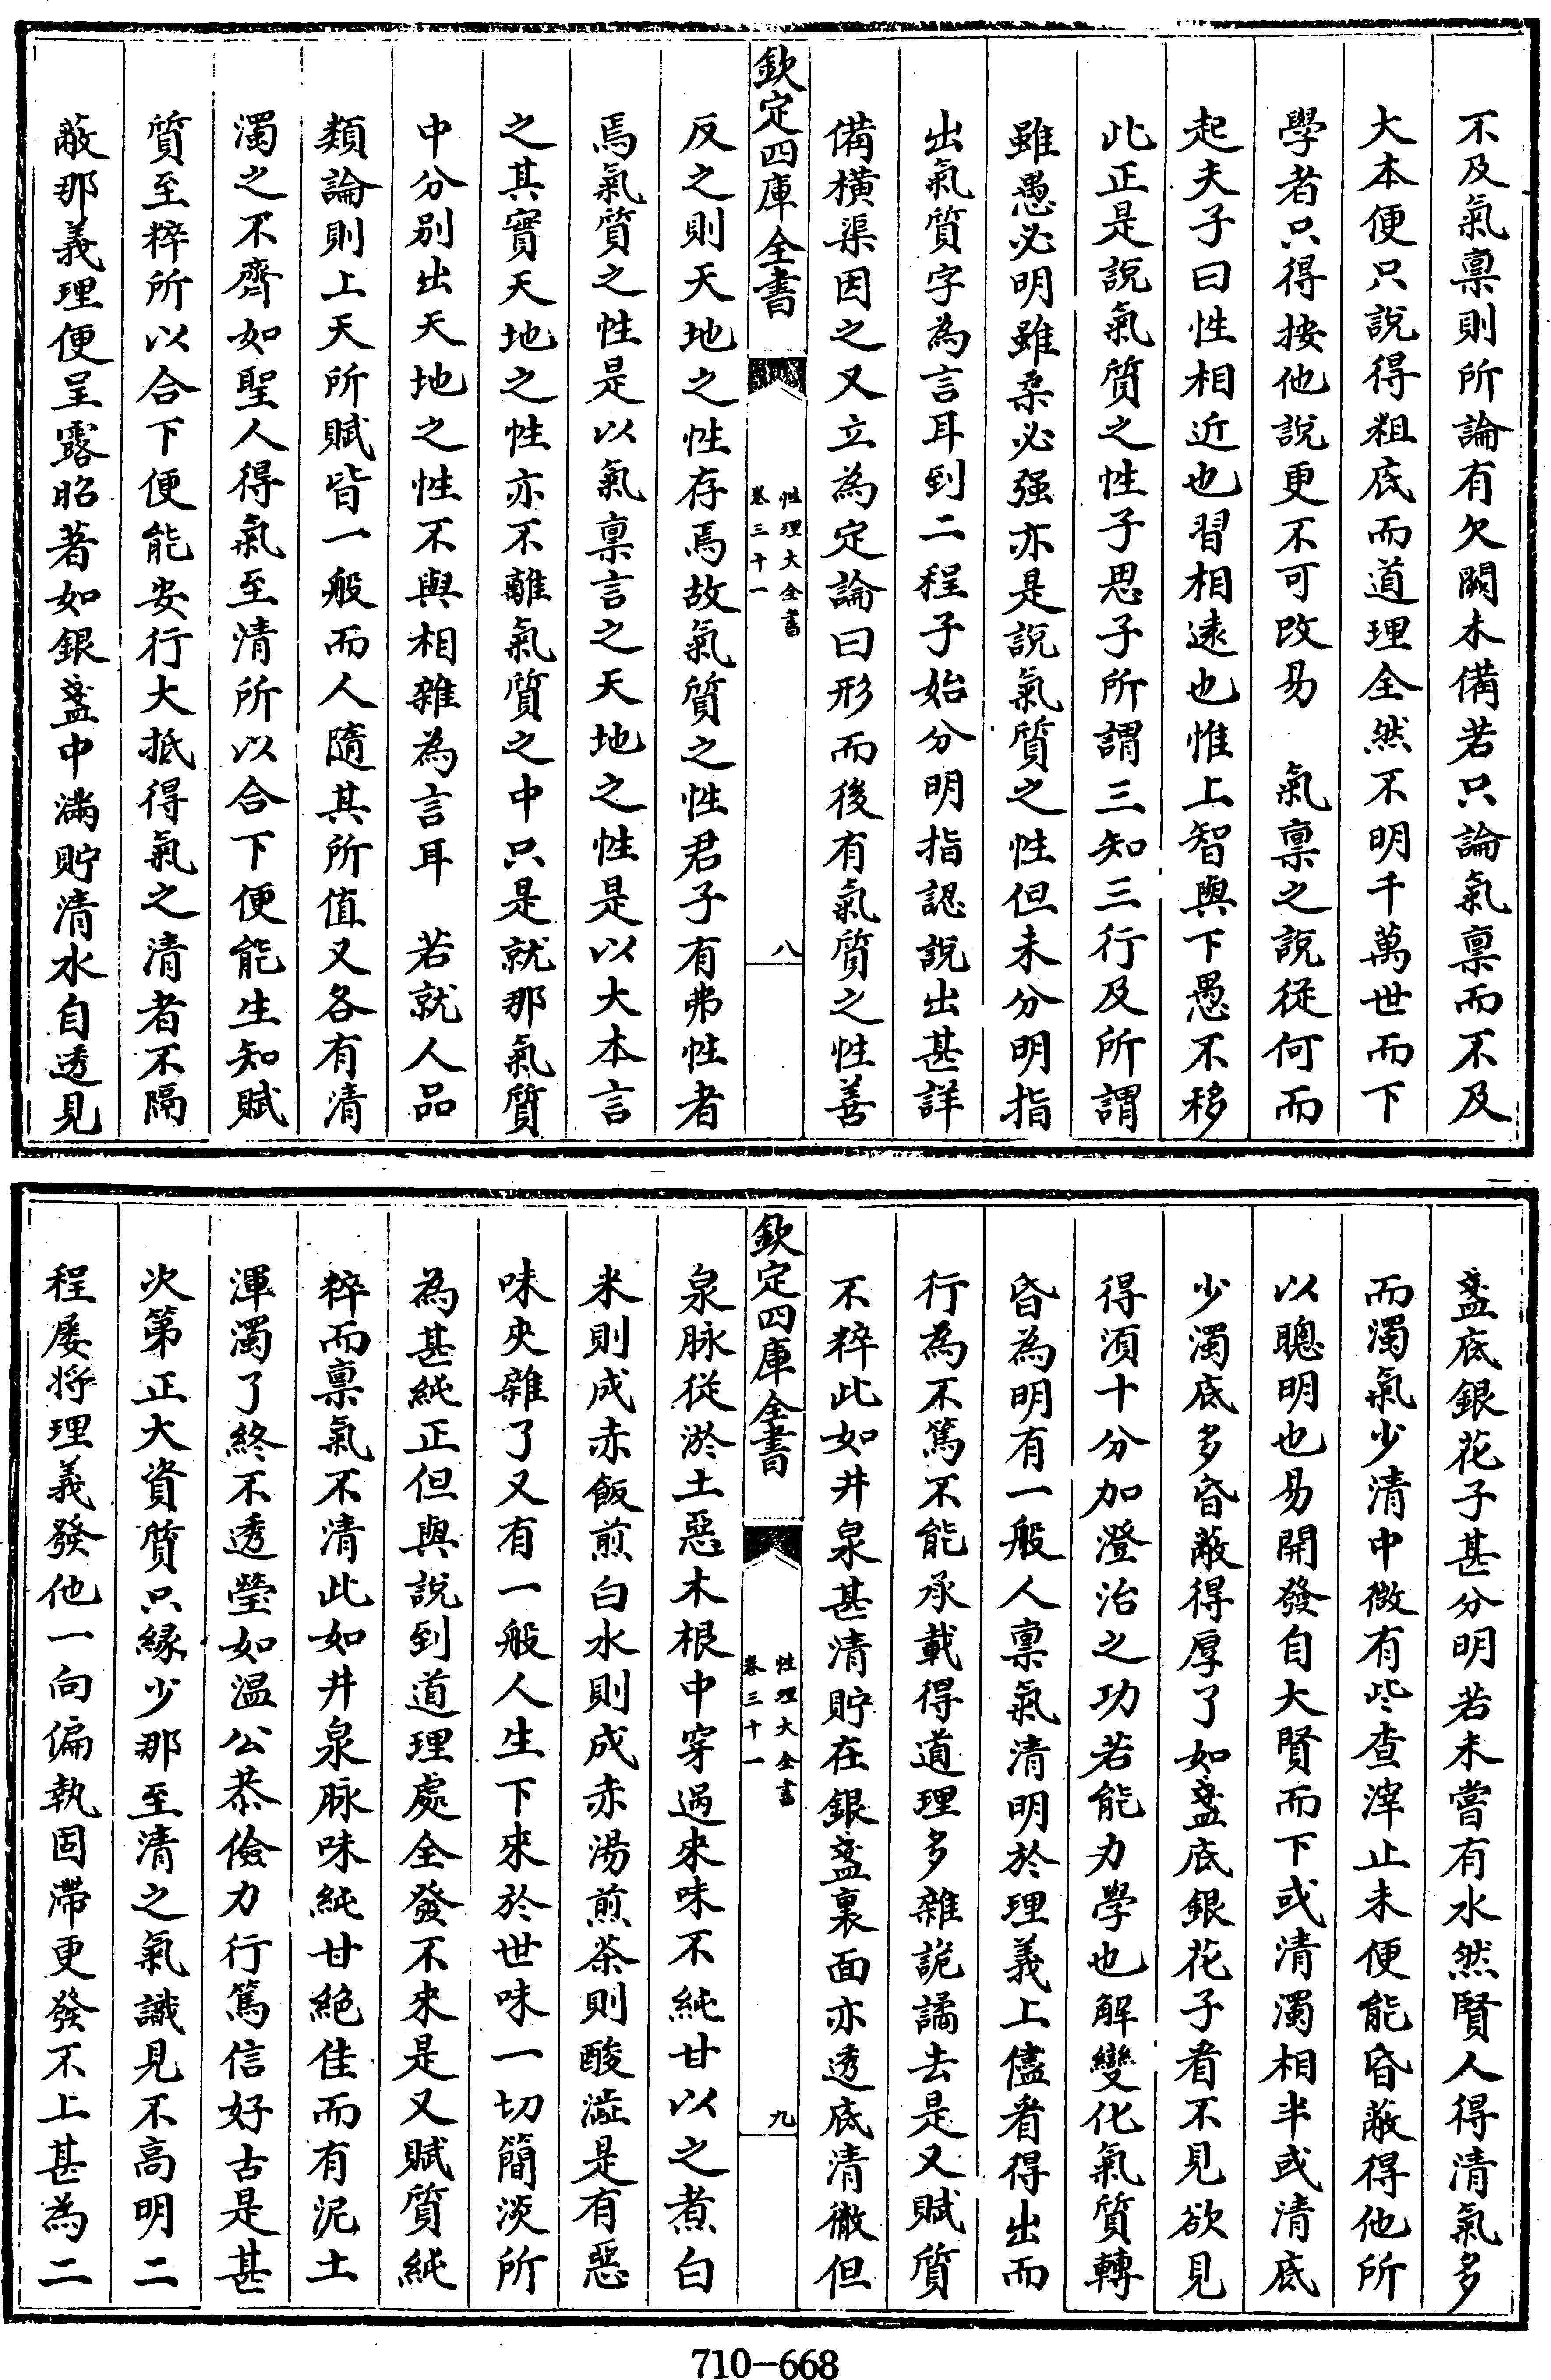 不及氣稟則所論有欠闕未備若只論氣稟而不及
大本便只說得粗底而道理全然不明千萬世而下
學者只得按他說更不可改易　氣稟之說從何而
起夫子曰性相近也習相遠也惟上智與下愚不移
此正是說氣質之性子思子所謂三知三行及所謂
雖愚必明雖柔必强亦是說氣質之性但未分明指
出氣質字為言耳到二程子始分明指認說出甚詳
備橫渠因之又立為定論曰形而後有氣質之性善
欽定四庫全書
性理大全書
卷三十一
八
反之則天地之性存焉故氣質之性君子有弗性者
焉氣質之性是以氣稟言之天地之性是以大本言
之其實天地之性亦不離氣質之中只是就那氣質
中分别出天地之性不與相雜為言耳　若就人品
類論則上天所賦皆一般而人隨其所值又各有清
濁之不齊如聖人得氣至清所以合下便能生知賦
質至粹所以合下便能安行大抵得氣之清者不隔
蔽那義理便呈露昭著如銀盞中滿貯清水自透見
盞底銀花子甚分明若未嘗有水然賢人得清氣多
而濁氣少清中微有些查滓止未便能昏蔽得他所
以聰明也易開發自大賢而下或清濁相半或清底
少濁底多昏蔽得厚了如盞底銀花子看不見欲見
得須十分加澄治之功若能力學也解變化氣質轉
昏為明有一般人稟氣清明於理義上儘看得出而
行為不篤不能承載得道理多雜詭譎去是又賦質
不粹此如井泉甚清貯在銀盞裏面亦透底清徹但
欽定四庫全書
性理大全書
卷三十一
九
泉脉從淤土惡木根中穿過來味不純甘以之煮白
米則成赤飯煎白水則成赤湯煎茶則酸澁是有惡
味夾雜了又有一般人生下來於世味一切簡淡所
為甚純正但與說到道理處全發不來是又賦質純
粹而稟氣不清此如井泉脉味純甘絶佳而有泥土
渾濁了終不透瑩如温公恭儉力行篤信好古是甚
次第正大資質只緣少那至清之氣識見不高明二
程屢將理義發他一向偏執固滯更發不上甚為二
710-668